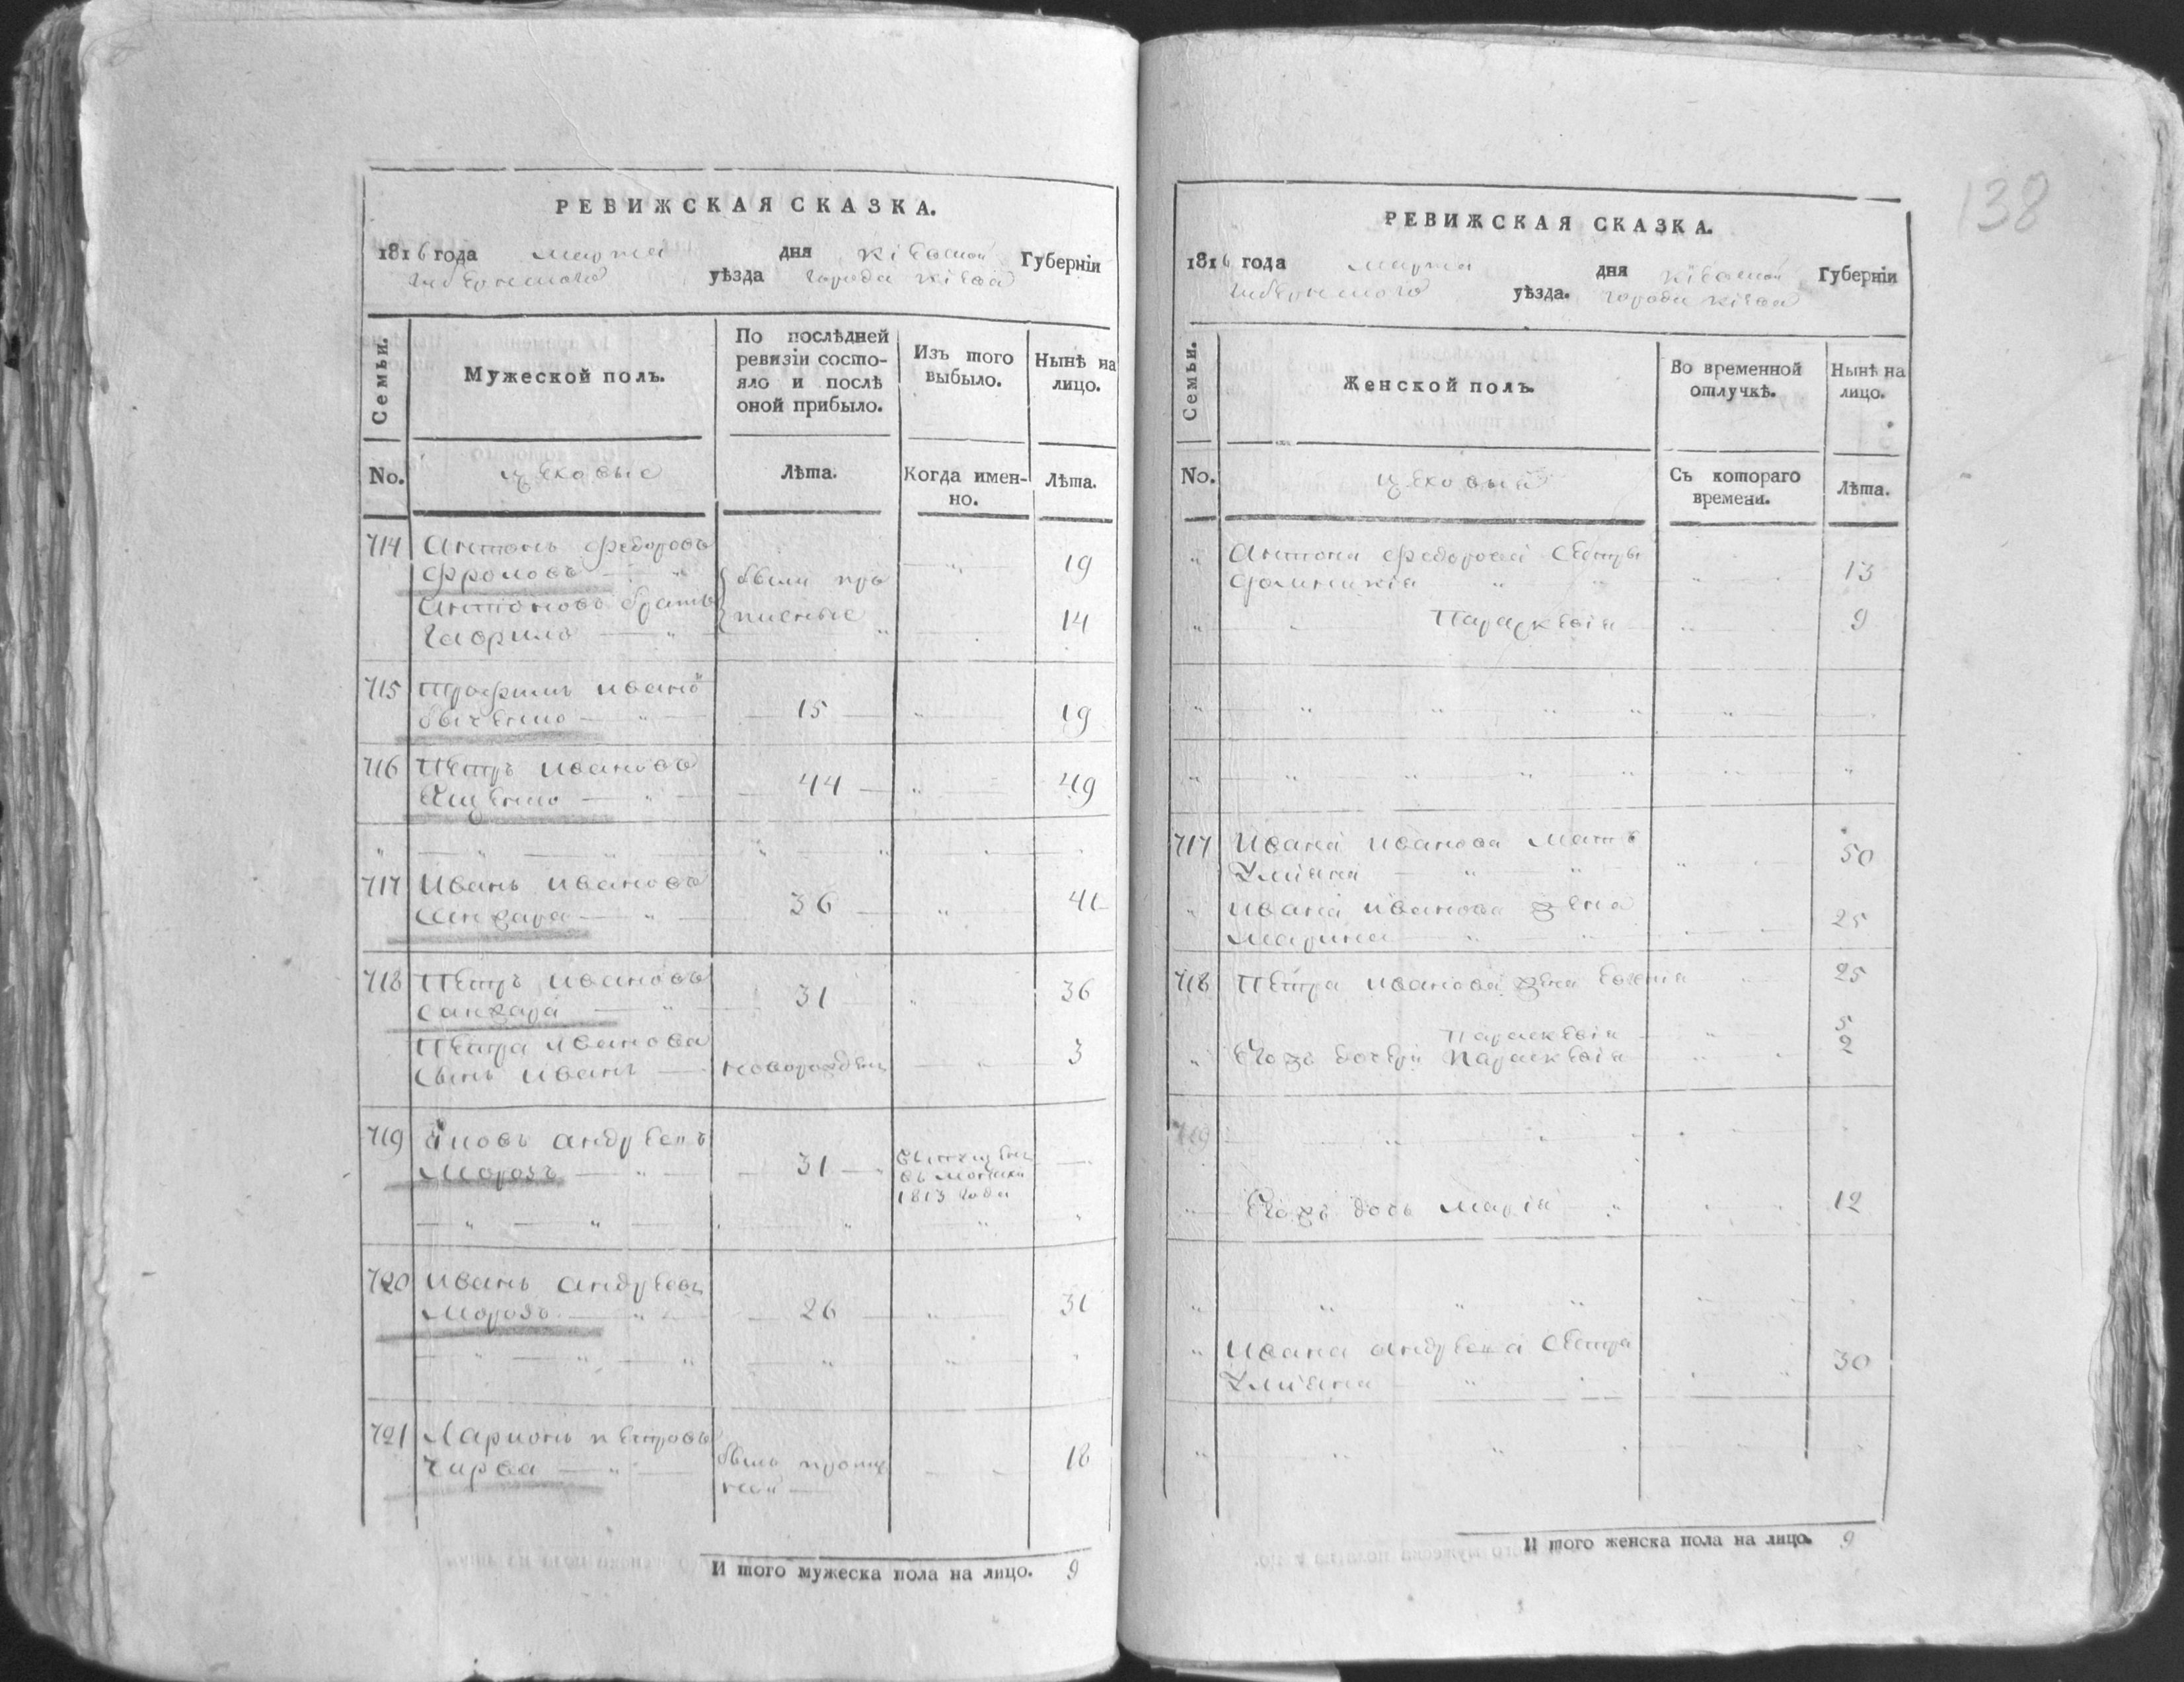 РЕВИЖСКАЯ СКАЗКА.
1816 года марта дня Кіевской Губерніи
уѣзда города Кіева
Семьи.
Мужеской полъ.
По послѣдней
ревизіи состо-
яло и послѣ
оной прибыло.
Изъ того
выбыло.
Нынѣ на
лицо.
No.
цеховые
Лѣта.
Когда имен-
но.
Лѣта.
714 Антонъ Федоровъ
Фроловъ 19
Антоновъ братъ
Гаврило 14
были про
писные
715 Трофимъ Ивановъ
15 19
716 Петръ Ивановъ
44 49
717 Иванъ Ивановъ
36 41
718 Петръ Ивановъ
Санжара 31 36
Петра Иванова
сынъ Иванъ новорожден 3
719 Яковъ Андреевъ
Морозъ 31
1813 года
720 Иванъ Андреевъ
Морозъ 26 31
721 Ларионъ Петровъ
Чирва 18
былъ пропис
ной
И того мужеска пола на лицо. 9
138
РЕВИЖСКАЯ СКАЗКА.
1816 года марта дня Кіевской Губерніи
уѣзда. города Кіева
Семьи.
Женской полъ.
Во временной
отлучкѣ.
Нынѣ на
лицо.
No.
Съ котораго
времени.
Лѣта.
Антона Федорова сестры
13
Параскевія 9
717 Ивана Иванова мать
Улияна 50
Ивана Иванова жена
Марина 25
718 Петра Иванова жена 25
Параскевія 5
Егожъ дочери Параскевія 2
719
Егожъ дочь Марія 12
Ивана Андреева сестра
Улияна 30
И того женска пола на лицо. 9